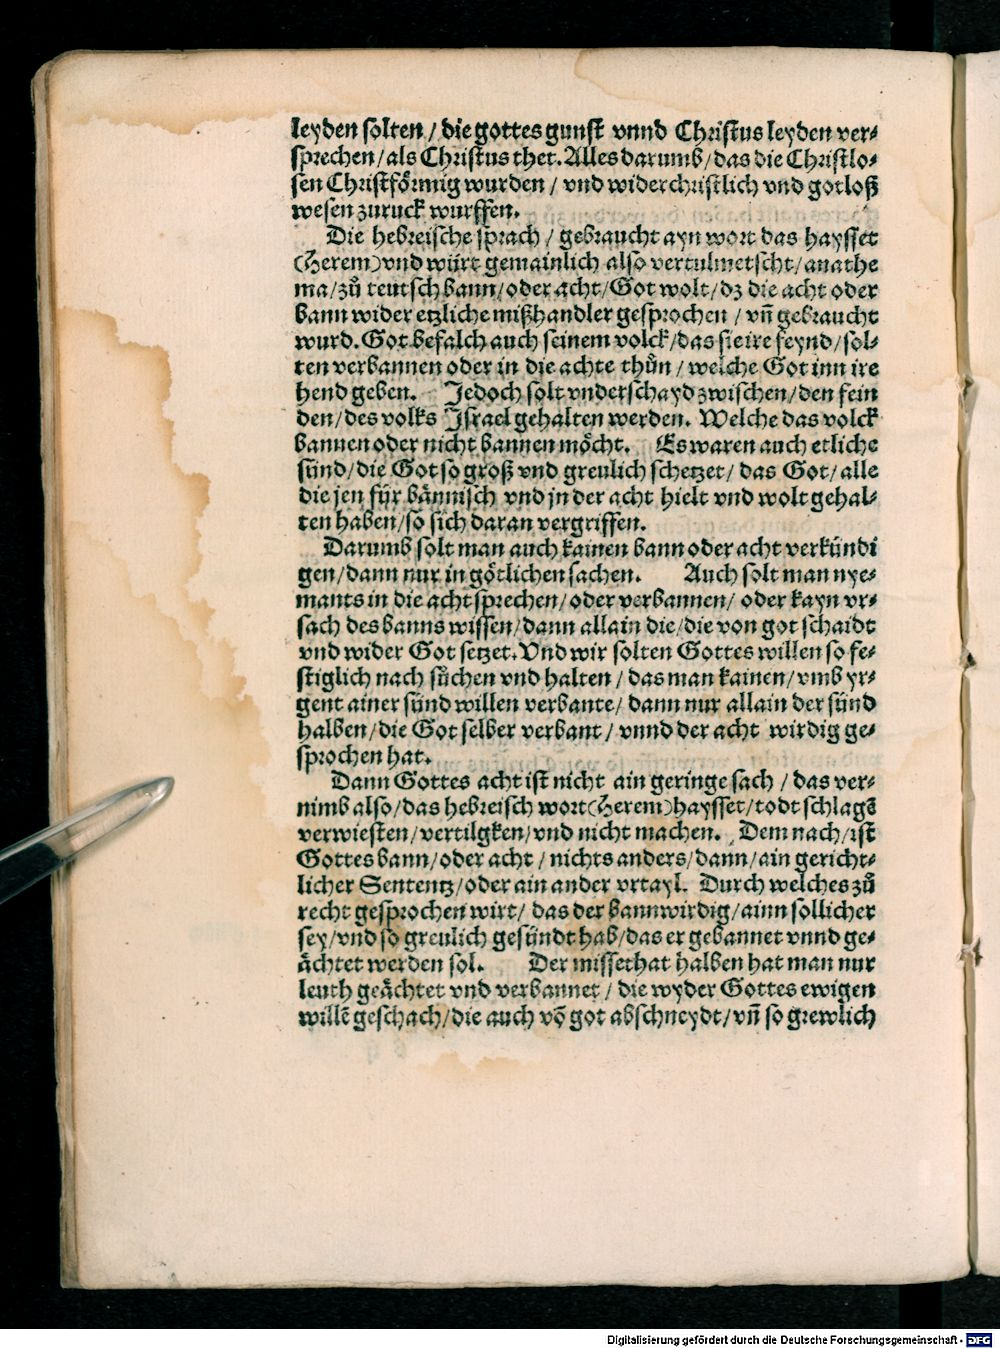 leyden solten / die gottes gunst vnnd Christus leyden ver⸗
sprechen / als Christus thet. Alles darumb / das die Christlo⸗
sen Christförmig wurden / vnd widerchristlich vnd gotloß
wesen zuruck wurffen.
Die hebreische sprach / gebraucht ayn wort das haysset
(Herem) vnd würt gemainlich also vertulmetscht / anathe
ma / zů teutsch bann / oder acht / Got wolt / dz die acht oder
bann wider etzliche mißhandler gesprochen / vñ gebraucht
wurd. Got befalch auch seinem volck / das sie ire feynd / sol⸗
ten verbannen oder in die achte thůn / welche Got inn ire
hend geben. Jedoch solt vnderschayd zwischen / den fein
den / des volks Israel gehalten werden. Welche das volck
bannen oder nicht bannen möcht. Es waren auch etliche
sünd / die Got so groß vnd greulich schetzet / das Got / alle
die jen für bännisch vnd jn der acht hielt vnd wolt gehal⸗
ten haben / so sich daran vergriffen.
Darumb solt man auch kainen bann oder acht verkündi
gen / dann nur in götlichen sachen. Auch solt man nye⸗
mants in die acht sprechen / oder verbannen / oder kayn vr⸗
sach des banns wissen / dann allain die / die von got schaidt
vnd wider Got setzet. Vnd wir solten Gottes willen so fe⸗
stiglich nach sůchen vnd halten / das man kainen / vmb yr⸗
gent ainer sünd willen verbante / dann nur allain der sünd
halben / die Got selber verbant / vnnd der acht wirdig ge⸗
sprochen hat.
Dann Gottes acht ist nicht ain geringe sach / das ver⸗
nimb also / das hebreisch wort (Herem) haysset / todt schlagē
verwiesten / vertilgken / vnd nicht machen. Dem nach / ist
Gottes bann / oder acht / nichts anders / dann / ain gericht⸗
licher Sententz / oder ain ander vrtayl. Durch welches zů
recht gesprochen wirt / das der bannwirdig / ainn sollicher
sey / vnd so greulich gesündt hab / das er gebannet vnnd ge⸗
ächtet werden sol. Der missethat halben hat man nur
leuth geächtet vnd verbannet / die wyder Gottes ewigen
willē geschach / die auch vō got abschneydt / vñ so grewlich
Digitalisierung gefördert durch die Deutsche Forschungsgemeinschaft - DFG